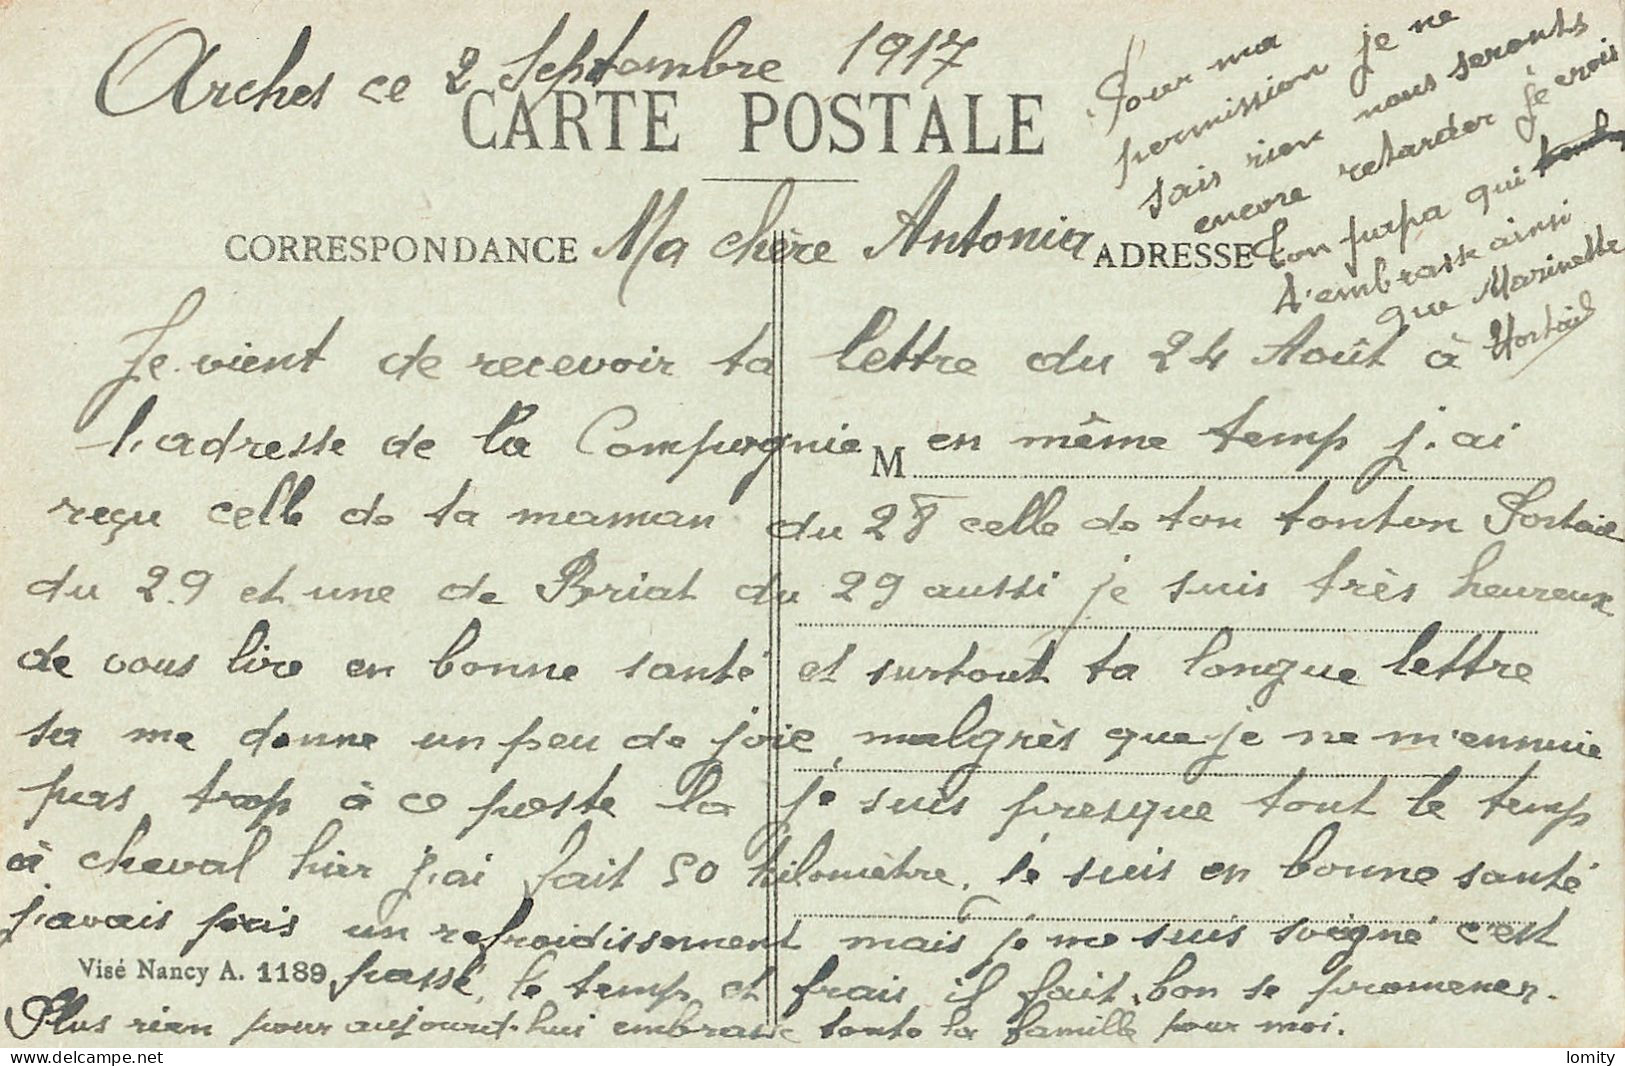 Arches ce 2 Septembre 1917
CARTE POSTALE
CORRESPONDANCE
Ma chère Antonia
ADRESSE
Je vient de recevoir ta lettre du 24 Août à
l'adresse de la Compagnie en même temp j'ai
M
reçu celle de ta maman du 28 celle de ton tonton
du 29 et une de Briat du 29 aussi je suis très heureux
de vous lire en bonne santé et surtout ta longue lettre
sa me donne un peu de joie, malgrès que je ne m'ennuie
pas trop à ce poste la je suis presque tout le temp
à cheval hier j'ai fait 50 kilomètre. Je suis en bonne santé
j'avais pris un refroidissement mais je me suis soigné c'est
Visé Nancy A. 1189
passé, le temp et frais il fait bon se promener.
Plus rien pour aujourd'hui embrasse toute la famille pour moi.
Pour ma
permission je ne
sais rien nous seronts
encore retarder je crois
Ton papa qui
t'embrasse ainsi
que Marinette